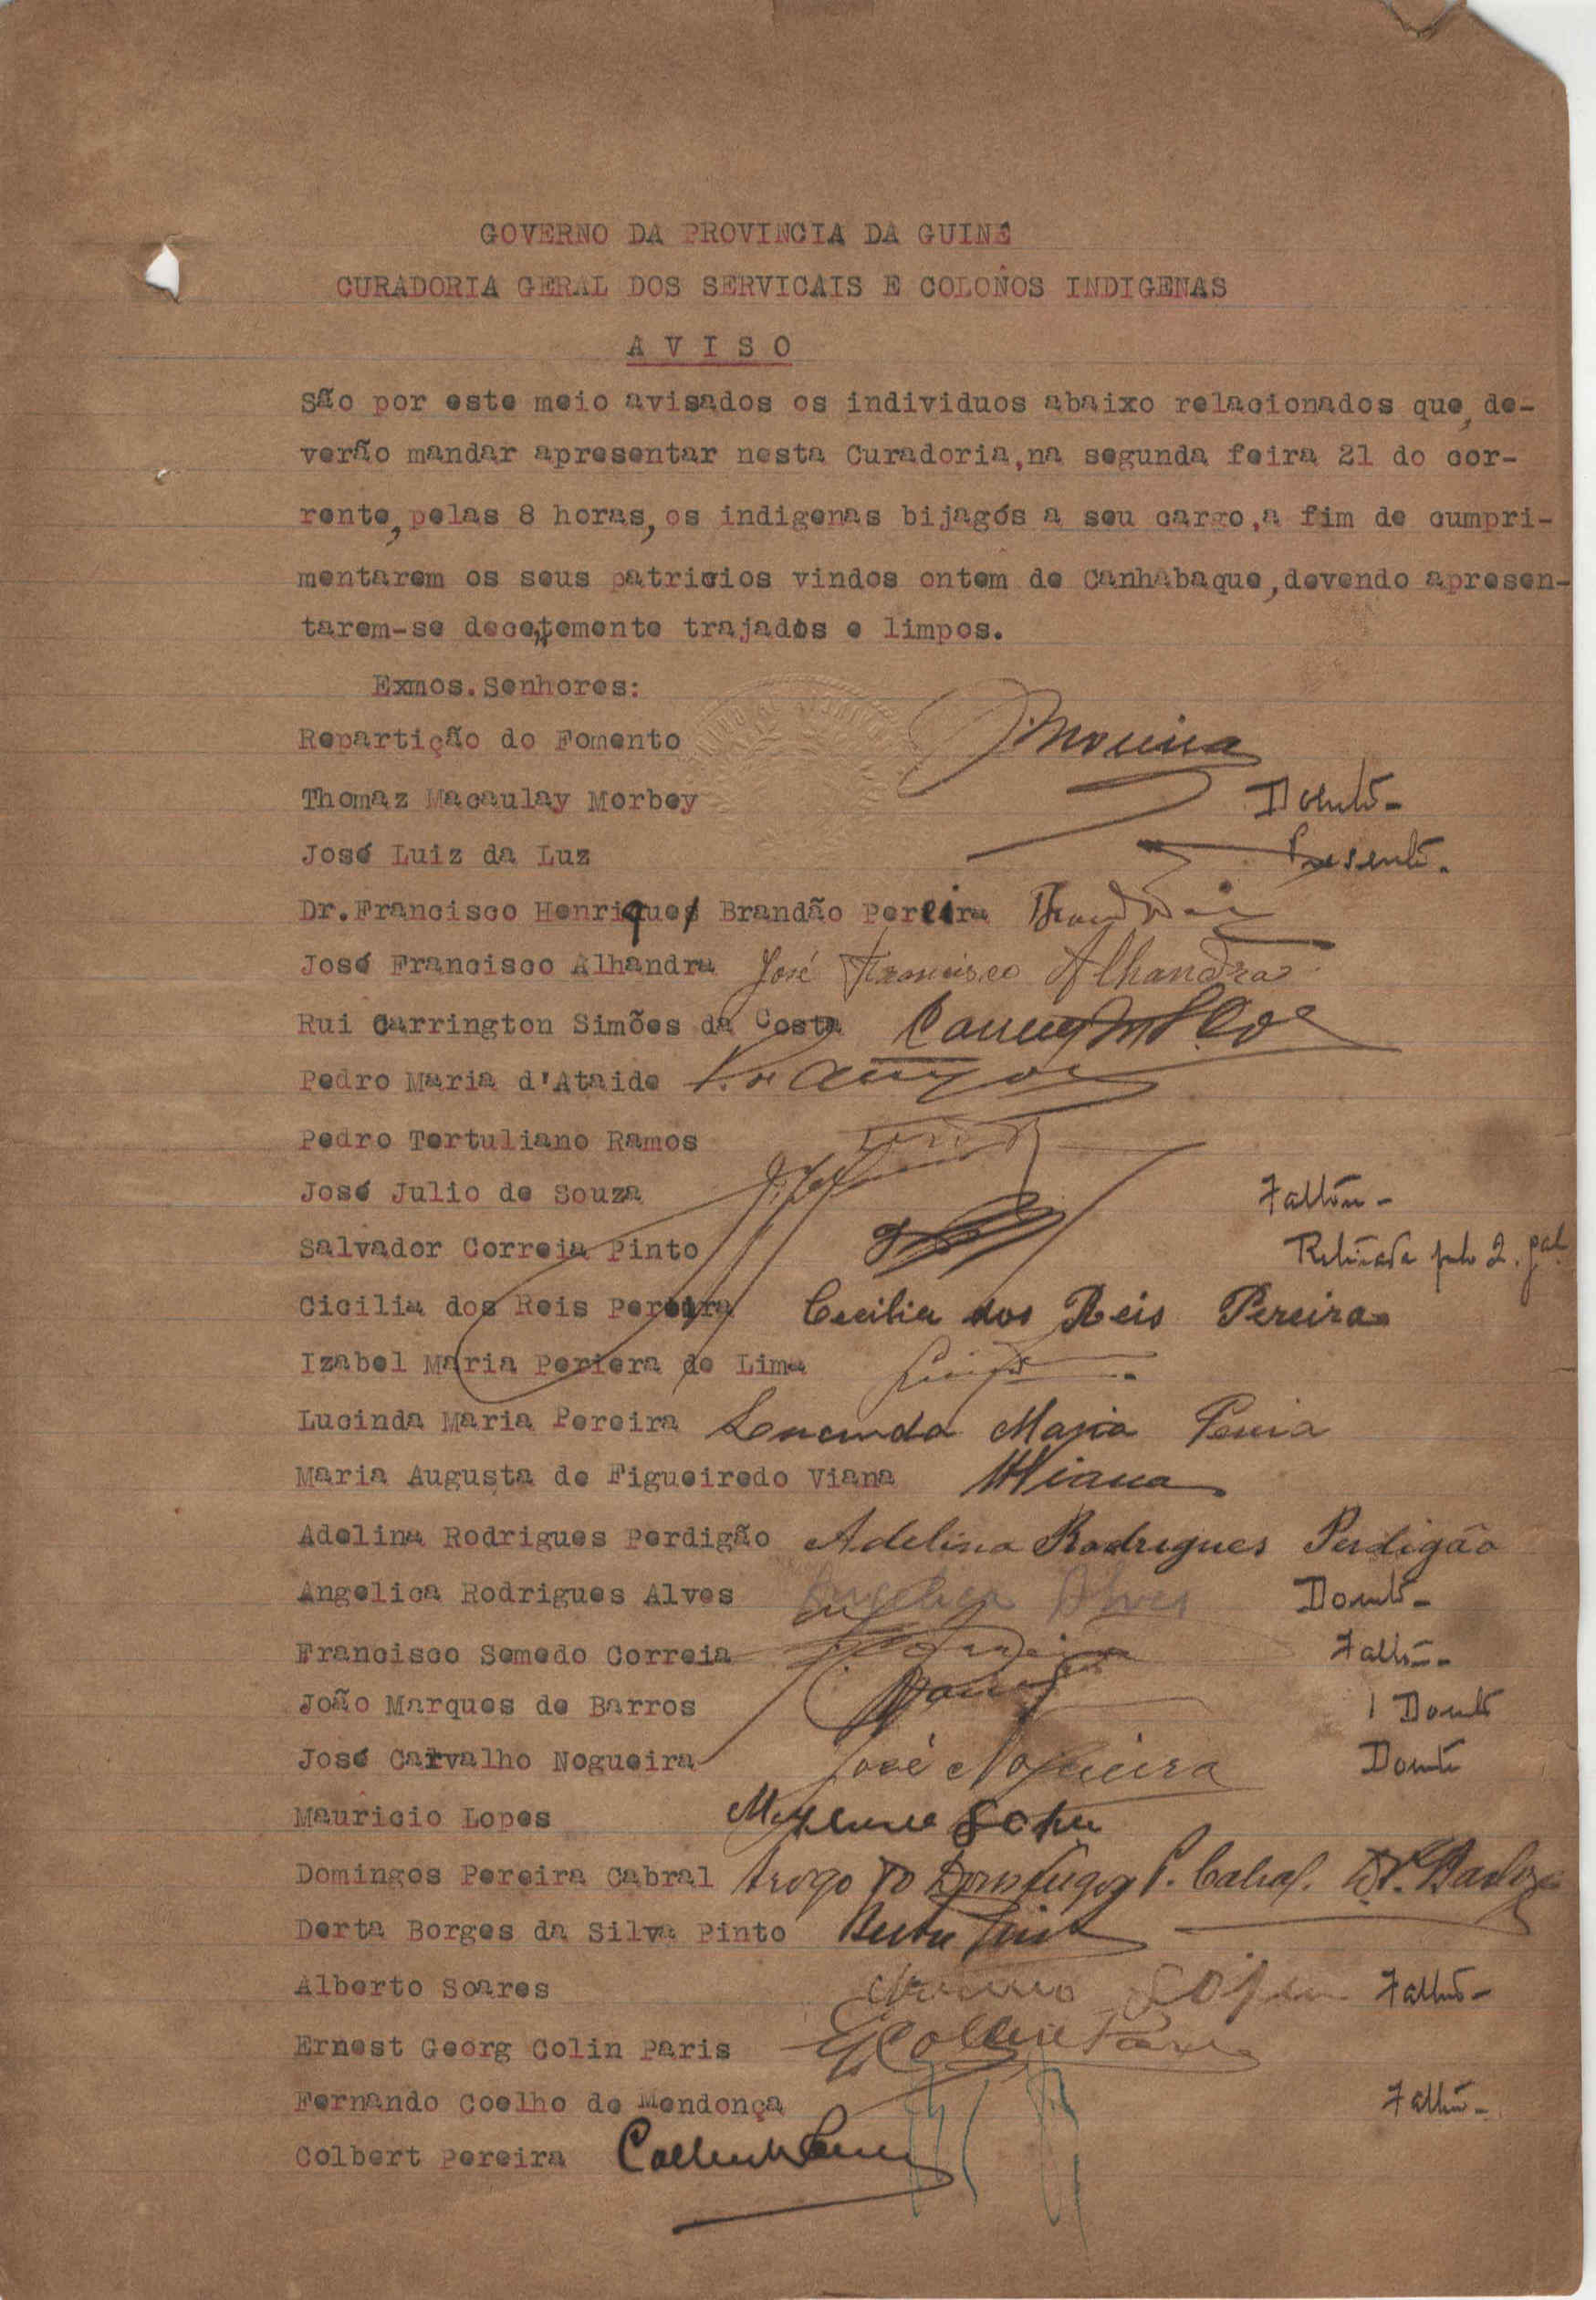 GOVERNO DA PROVINCIA DA GUINÉ
CURADORIA GERAL DOS SERVICAIS E COLONOS INDIGENAS
A V I S O
São por este meio avisados os individuos abaixo relacionados que, de-
verão mandar apresentar nesta Curadoria,na segunda feira 21 do cor-
rente, pelas 8 horas, os indigenas bijagós a seu cargo,a fim de cumpri-
mentarem os seus patricios vindos ontem de Canhabaque, devendo apresen-
tarem-se decentemente trajados e limpos.
Exmos.Senhores:
Repartição do Fomento JMoreira
Thomaz Macaulay Morbey Doente-
José Luiz da Luz Presente.
Dr.Francisco Henrique Brandão Pereira
José Francisco Alhandra José Francisco Alhandra
Rui Carrington Simões da Costa
Pedro Maria d'Ataide
Pedro Tertuliano Ramos
José Julio de Souza Faltou-
Salvador Correia Pinto
Cicilia dos Reis Pereira Cecilia dos Reis Pereira
Izabel Maria Periera de Lima
Lucinda Maria Pereira Lucinda Maria
Maria Augusta de Figueiredo Viana MViana
Adelina Rodrigues Perdigão Adelina Rodrigues Perdigão
Angelica Rodrigues Alves Angelica Alves Doente-
Francisco Semedo Correia Faltou-
João Marques de Barros 1 Doente
José Carvalho Nogueira José Nogueira Doente
Mauricio Lopes
Domingos Pereira Cabral Arogo do Domingos P. Cabral.
Derta Borges da Silva Pinto Berta Pinto
Alberto Soares Faltou-
Ernest Georg Colin Paris GColin Paris
Fernando Coelho de Mendonça Faltou-
Colbert Pereira